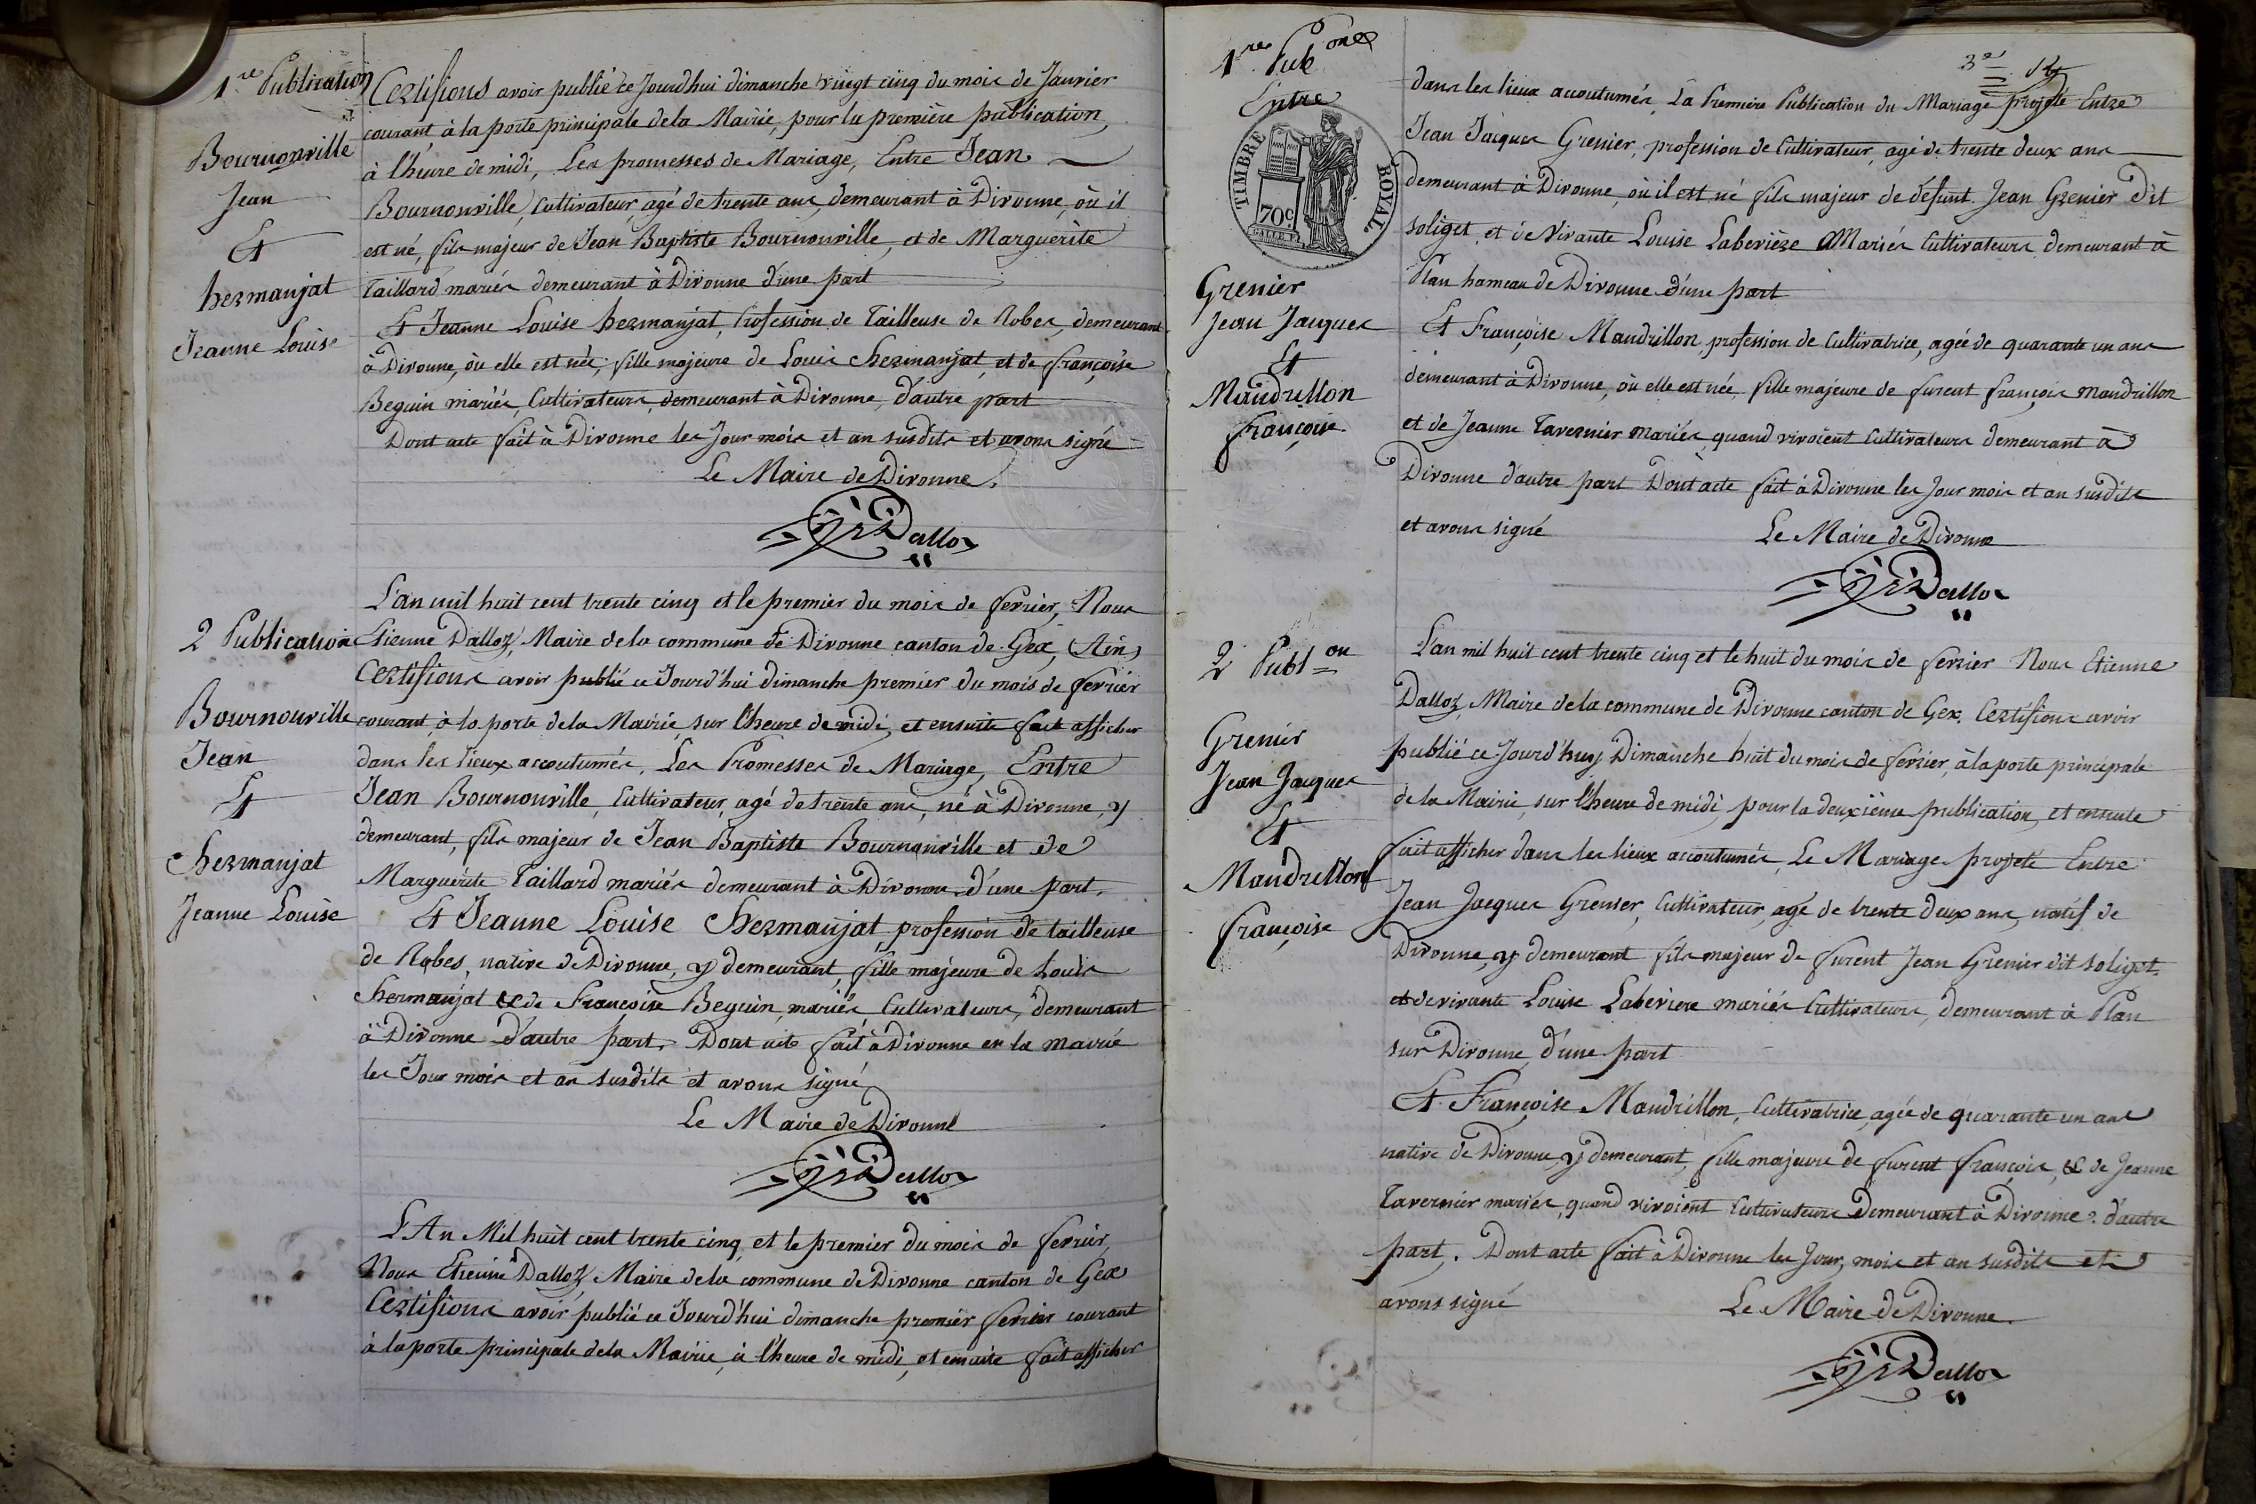 1re Publication
Bournonville
Jean
Et
hermanjat
Jeanne Louise
Certifions avoir publié ce Jourd'hui dimanche vingt cinq du mois de Janvier
courant, à la porte principale de la Mairie, pour la première publication,
à l'heure de midi, Les promesses de Mariage, Entre Jean
Bournonville, Cultivateur, agé de trente ans, demeurant à Divonne, où il
est né, fils majeur de Jean Baptiste Bournonville, et de Marguerite
Taillard mariés demeurant à Divonne d'une part
Et Jeanne Louise hermanjat, Profession de Tailleuse de Robes, demeurant
à Divonne, où elle est née, fille majeure de Louis Chermanjat, et de françoise
Beguin mariés, Cultivateurs, demeurant à Divonne, d'autre part
Dont acte fait à Divonne les Jour mois et an susdits et avons signé
Le Maire de Divonne.
Dalloz
2 Publication
Bournonville
Jean
Et
Chermanjat
Jeanne Louise
L'an mil huit cent trente cinq et le premier du mois de fevrier, Nous
Etienne Dalloz, Maire de la commune de Divonne canton de Gex, (Ain)
Certifions avoir publié ce Jourd'hui dimanche premier du mois de fevrier
courant, à la porte de la Mairie, sur l'heure de midi, et ensuite fait afficher
dans les lieux accoutumés, Les Promesses de Mariage, Entre
Jean Bournonville, Cultivateur, agé de trente ans, né à Divonne, y
demeurant, fils majeur de Jean Baptiste Bournonville et de
Marguerite Taillard mariés demeurant à Divonne d'une part.
Et Jeanne Louise Chermanjat, profession de tailleuse
de Robes, native de Divonne, y demeurant, fille majeure de Louis
Chermanjat & de Françoise Beguin, mariés, Cultivateurs, demeurant
à Divonne d'autre part. Dont acte fait à Divonne en la mairie
les Jour mois et an susdits et avons signé
Le Maire de Divonne
Dalloz
L'An Mil huit cent trente cinq, et le premier du mois de fevrier,
Nous Etienne Dalloz, Maire de la commune de Divonne canton de Gex
Certifions avoir publié ce Jourd'hui dimanche premier fevrier courant
à la porte principale de la Mairie, à l'heure de midi, et ensuite fait afficher
1re Pubon
Entre
TIMBRE ROYAL
70c
Grenier
Jean Jacques
Et
Mandrillon
françoise.
dans les lieux accoutumés, La Première Publication du Mariage projeté Entre
Jean Jacques Grenier, profession de Cultivateur, agé de trente deux ans
demeurant à Divonne, où il est né fils majeur de défunt Jean Grenier dit
soliget, et de Vivante Louise Laberière Mariés Cultivateurs demeurant à
Plan hameau de Divonne d'une part
Et Françoise Mandrillon, profession de Cultivatrice, agée de quarante un ans
demeurant à Divonne, où elle est née, fille majeure de furent françois mandrillon
et de Jeanne Tavernier mariés, quand vivoient Cultivateurs demeurant à
Divonne d'autre part Dont acte fait à Divonne les Jour mois et an susdits
et avons signé
Le Maire de Divonne
Dalloz
2 Publon
Grenier
Jean Jacques
Et
Mandrillon
françoise
L'an mil huit cent trente cinq et le huit du mois de fevrier Nous Etienne
Dalloz, Maire de la commune de Divonne canton de Gex, Certifions avoir
publié ce Jourd'huy Dimanche huit du mois de fevrier, à la porte principale
de la Mairie, sur l'heure de midi, pour la deuxième publication, et ensuite
fait afficher dans les lieux accoutumés, Le Mariage projeté Entre
Jean Jacques Grenier, Cultivateur, agé de trente deux ans, natif de
Divonne, y demeurant fils majeur de furent Jean Grenier dit soliget
et de vivante Louise Laberiere mariés Cultivateurs, demeurant à Plan
sur Divonne, d'une part
Et Françoise Mandrillon, Cultivatrice, agée de quarante un ans
native de Divonne, y demeurant, fille majeure de furent françois, & de Jeanne
Tavernier mariés, quand vivoient Cultivateurs demeurant à Divonne d'autre
part. Dont acte fait à Divonne les Jour, mois et an susdits et
avons signé
Le Maire de Divonne.
Dalloz